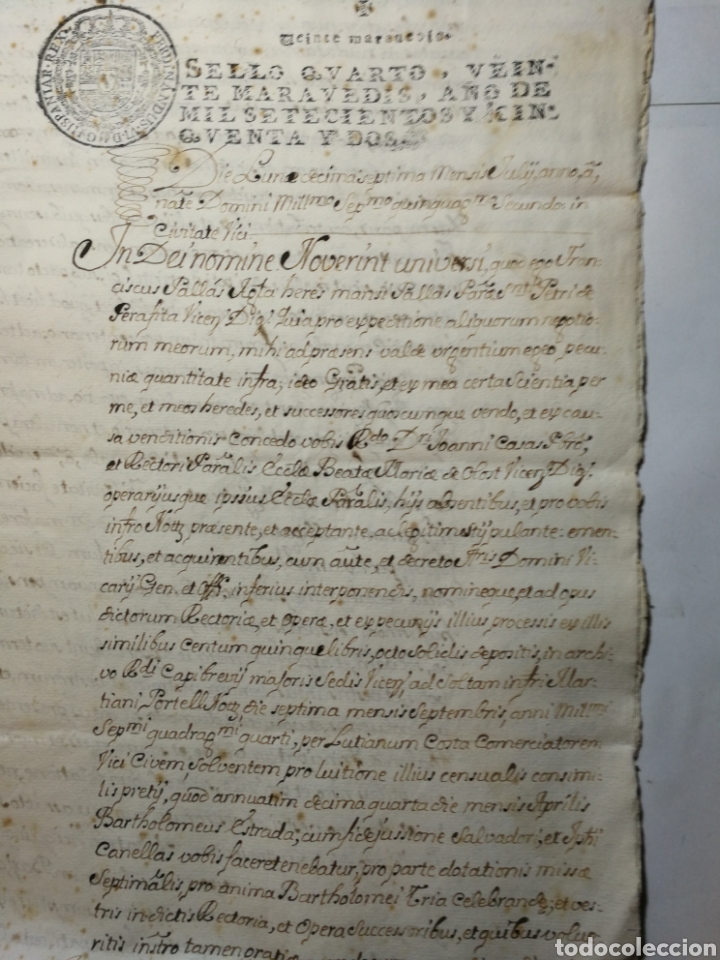 Veinte maravedis.
SELLO QVARTO, VEIN-
TE MARAVEDIS, AÑO DE
MIL SETECIENTOS Y CIN-
QVENTA Y DOS.
FERDINANDUS VI D G HISPANIAR REX
Die Lunæ decima septima Mensis Julij, anno,
natē Domini Millmo Septmo quinquagmo Secundo in
Civitate Vici
In Dei nomine Noverint universi, quod ego Fran-
ciscus Pallás Agta heres mansi Pallás Paræ Snti Petri de
Perafita Vicen Diœ. Quia pro expeditione aliquorum negotio-
rum meorum, mihi ad præsens valde urgentium egeo, pecu-
niæ quantitate infra, ideo Gratis, et ex mea certa scientia per
me, et meos heredes, et successores quoscunque vendo, et ex cau-
sa venditionis Concedo vobis Rdo Dri Joanni Casas Pbro,
et Rectori Parālis Ecclæ Beatæ Mariæ de Olost Vicen Diœ.
operarijsque ipsius Ecclæ Parālis, hijs absentibus, et pro vobis
infro Notō præsente, et acceptante, ac legitime stipulante emen-
tibus, et acquirentibus, cum auте, et decreto Domini Vi-
carij Gen. et Offis. inferius interponendis, nomineque, et ad opus
dictorum Rectoriæ, et Operæ, et ex pecunijs illius processis ex illis
similibus Centum quinque libris, octo solidis depositis, in archi-
vo Rdi Capibrevij majoris Sedis Vicen, ad soltam infri Mar-
tiani, Portell Notō, die septima mensis Septembris, anni Millmi
Sepmi quadragmi quarti, per Lutianum Costa Comerciatorem
Vici Civem, solventem pro luitione illius censualis consimi-
lis pretij, quod annuatim decima quarta die mensis Aprilis
Bartholomeus Estrada, cum fidejussione Salvadori, et Jphi
Canellas vobis facere tenebatur, pro parte dotationis missæ
Septimālis, pro anima Bartholomei Tria Celebrandæ, et ves-
tris in dictis Rectoria, et Opera Successoribus, et quibus volue-
ritis instro tamen oratio
todocoleccion